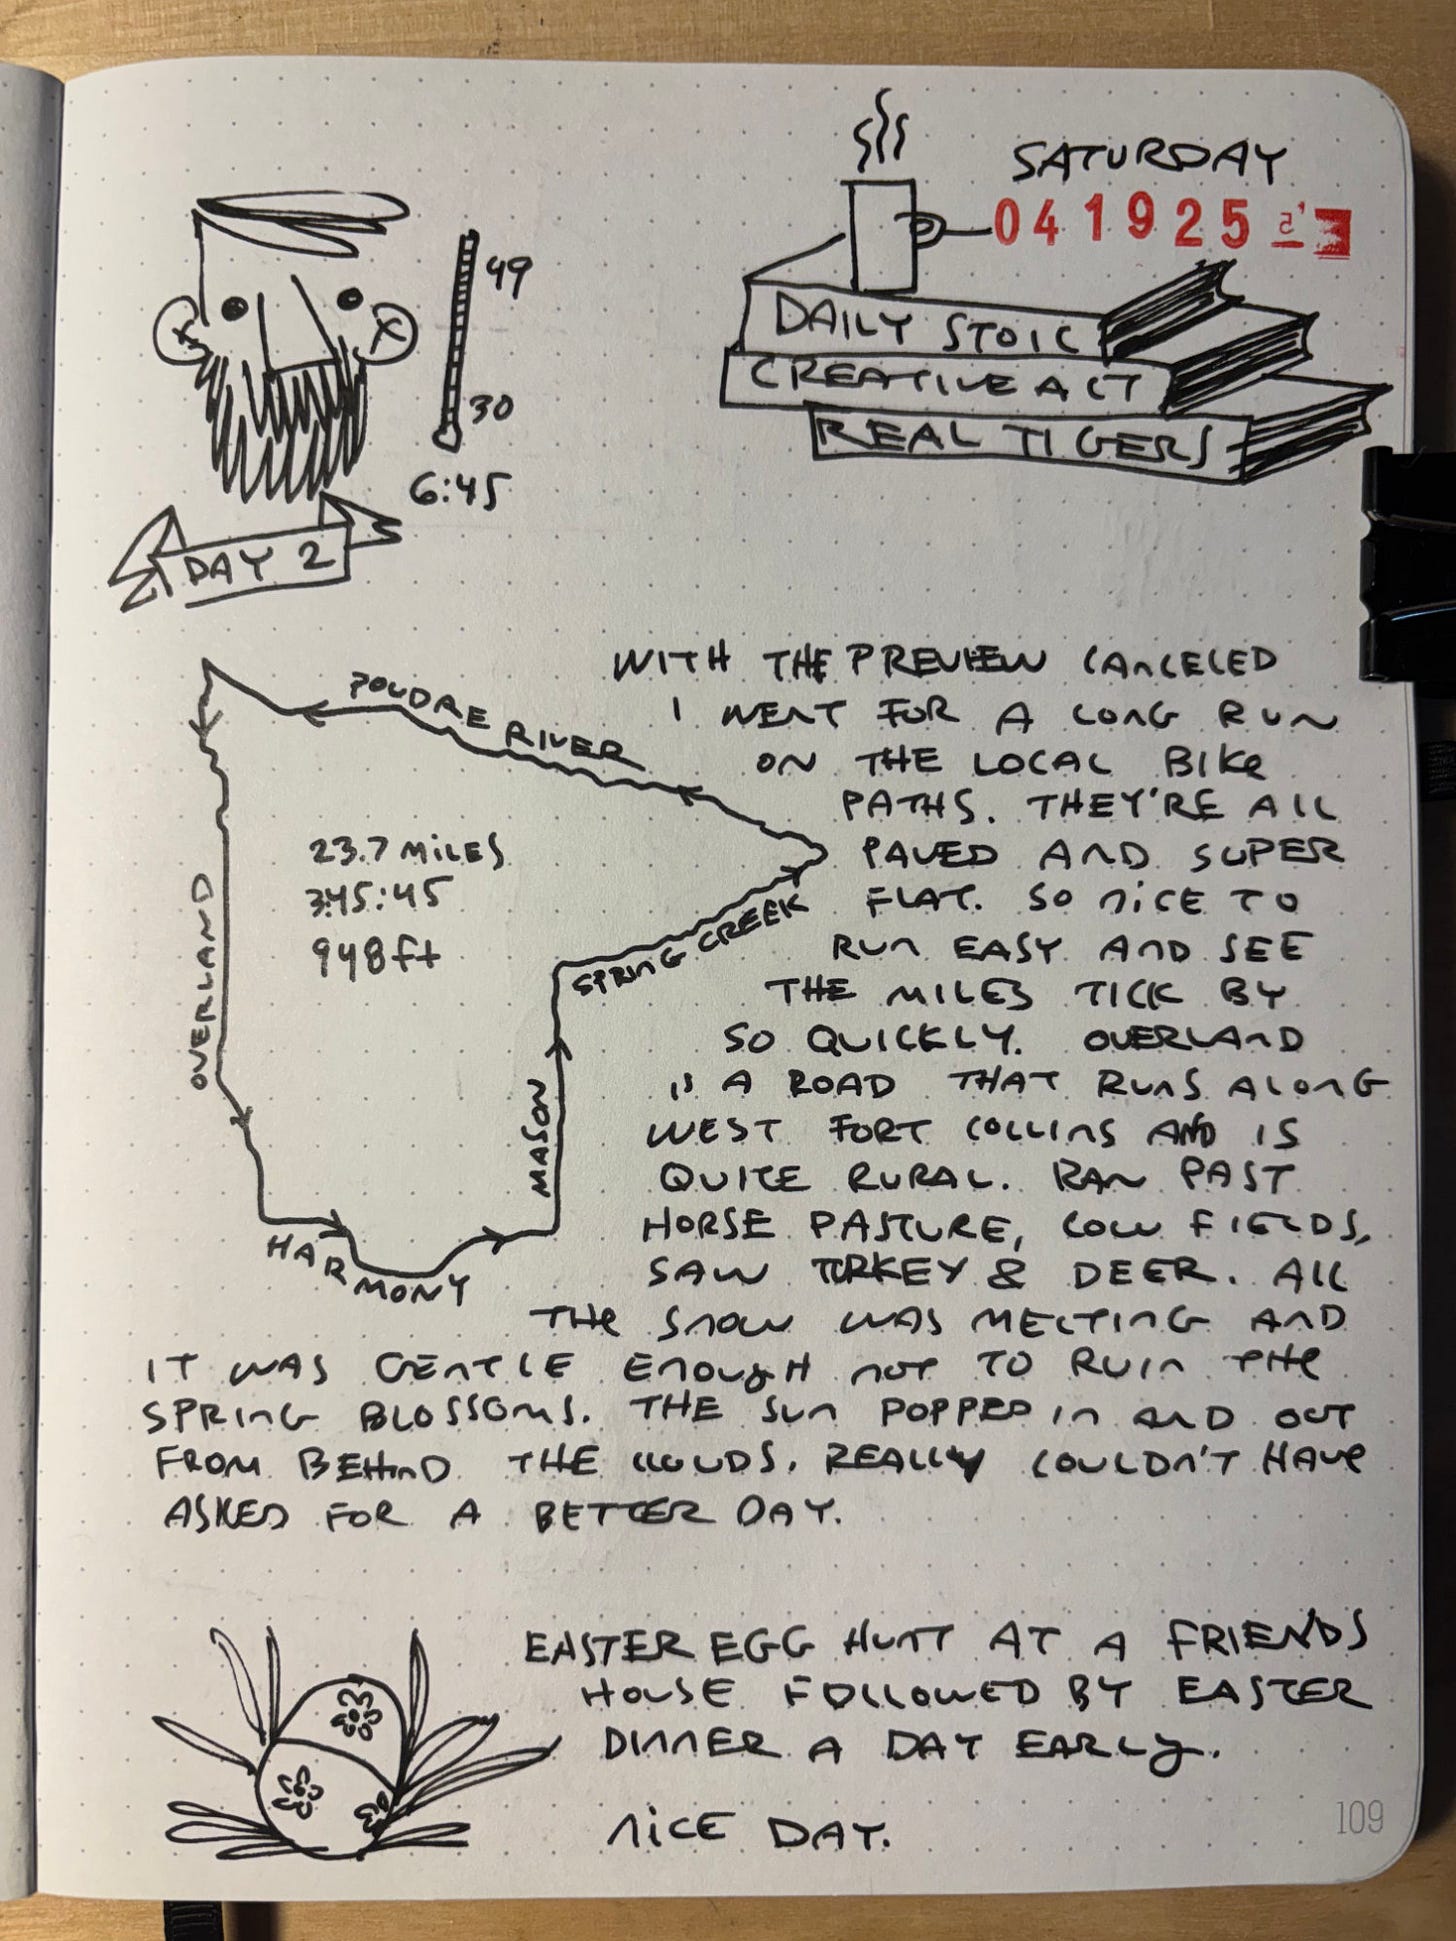 SATURDAY
041925
DAILY STOIC
CREATIVE ACT
REAL TIGERS
49
30
6:45
DAY 2
POUDRE RIVER
OVERLAND
HARMONY
MASON
SPRING CREEK
23.7 MILES
3:45:45
948 ft
WITH THE PREVIEW CANCELED
I WENT FOR A LONG RUN
ON THE LOCAL BIKE
PATHS. THEY'RE ALL
PAVED AND SUPER
FLAT. SO NICE TO
RUN EASY AND SEE
THE MILES TICK BY
SO QUICKLY. OVERLAND
IS A ROAD THAT RUNS ALONG
WEST FORT COLLINS AND IS
QUITE RURAL. RAN PAST
HORSE PASTURE, COW FIELDS,
SAW TURKEY & DEER. ALL
THE SNOW WAS MELTING AND
IT WAS GENTLE ENOUGH NOT TO RUIN THE
SPRING BLOSSOMS. THE SUN POPPED IN AND OUT
FROM BEHIND THE CLOUDS. REALLY COULDN'T HAVE
ASKED FOR A BETTER DAY.
EASTER EGG HUNT AT A FRIENDS
HOUSE FOLLOWED BY EASTER
DINNER A DAY EARLY.
NICE DAY.
109